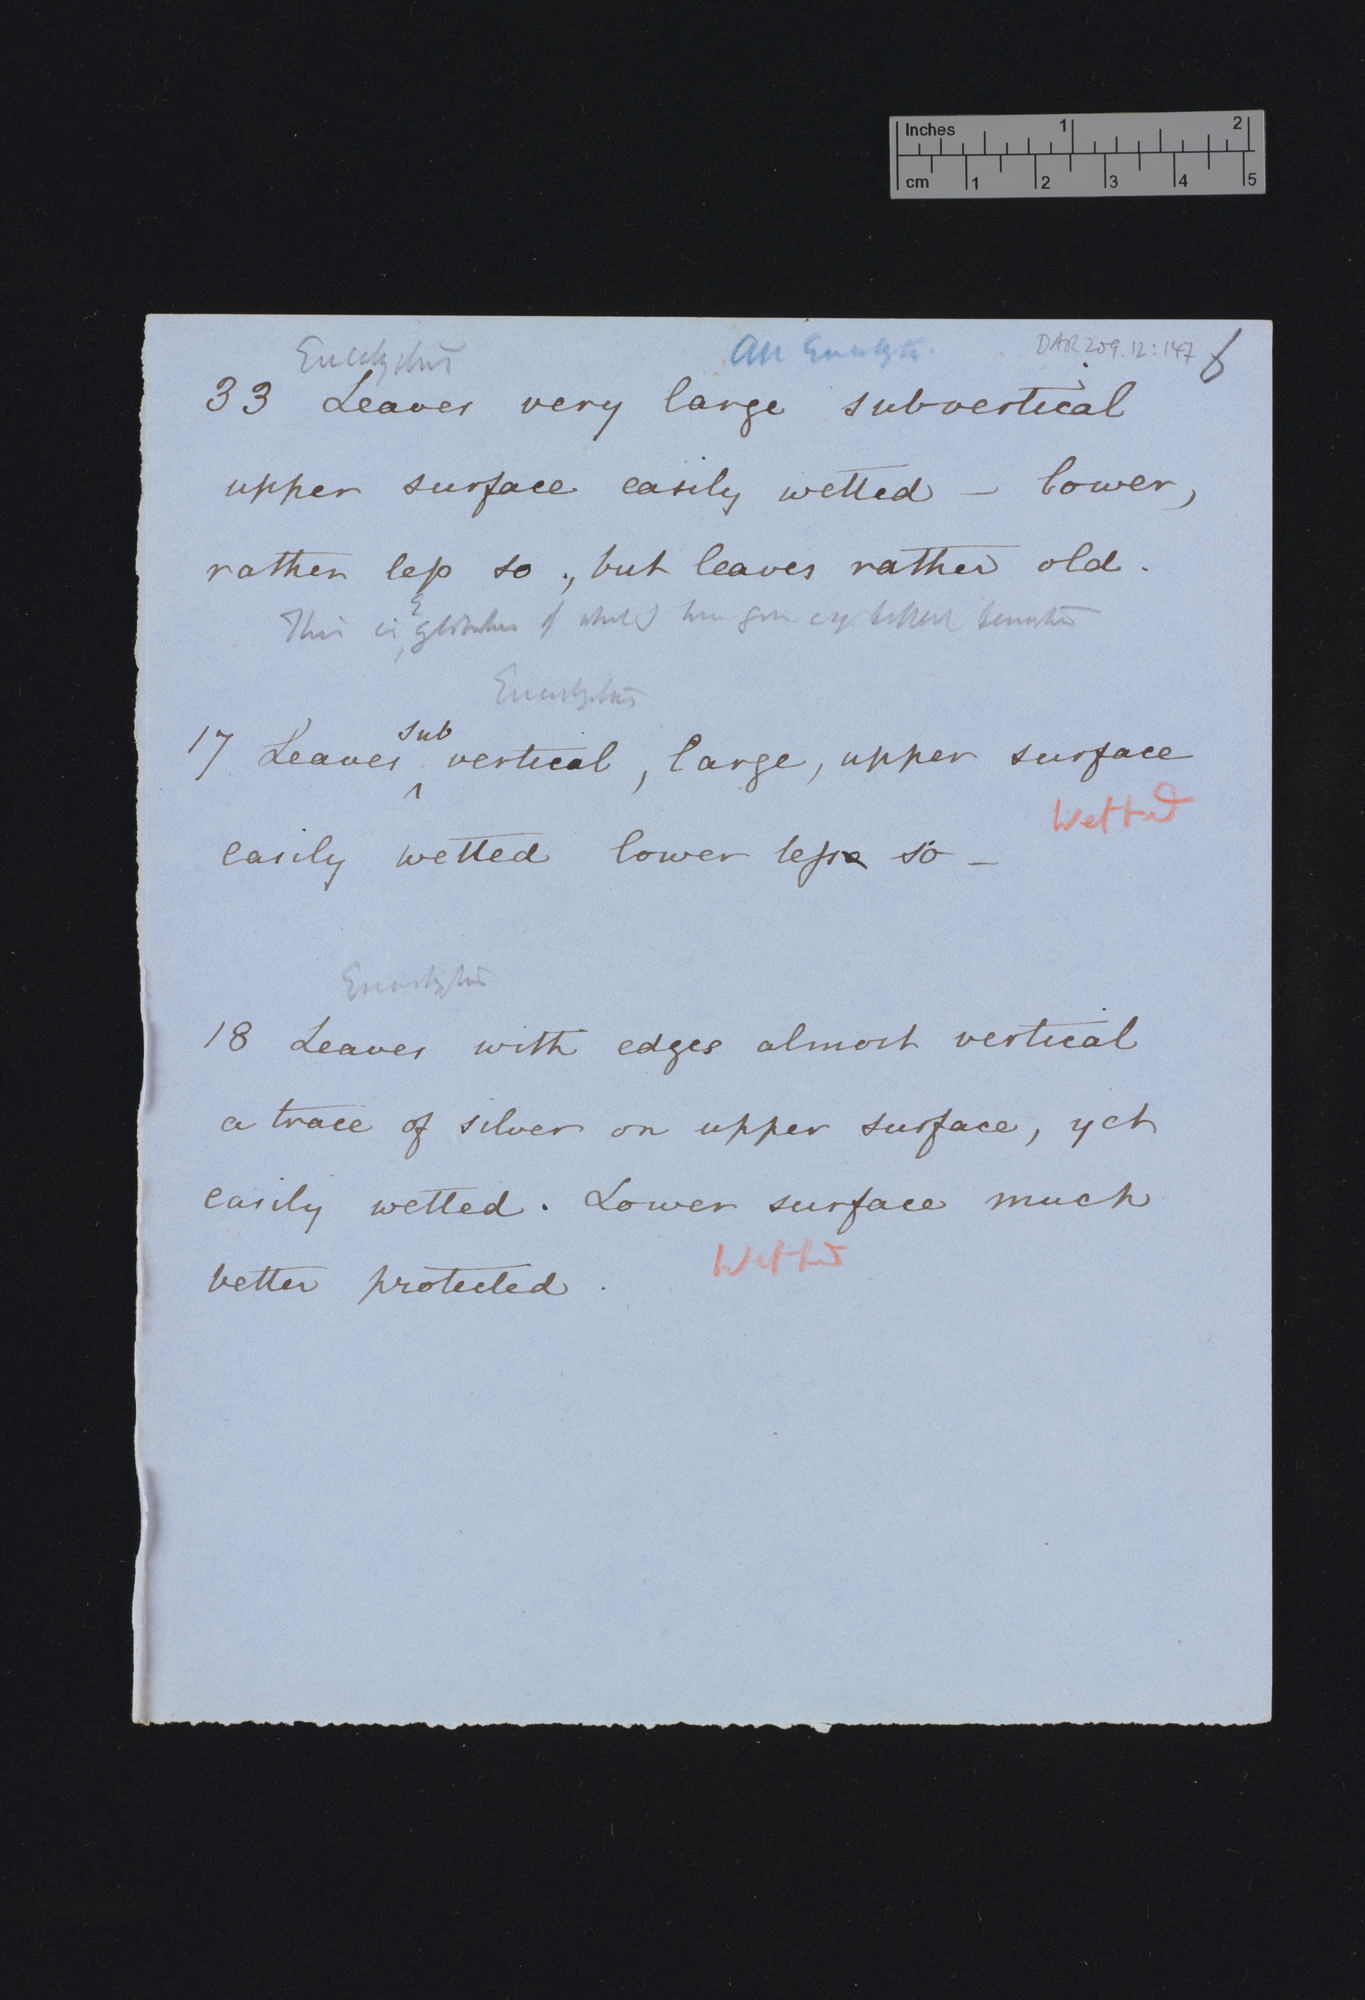 Inches 1 2
cm 1 2 3 4 5
Eucalyptus All Eucalypts. DAR 209.12:147 6
33 Leaves very large subvertical
upper surface easily wetted – lower,
rather less so., but leaves rather old.
This is E globulus of which I have given
Eucalyptus
17 Leaves sub vertical, large, upper surface
Wetted
easily wetted lower less so –
Eucalyptus
18 Leaves with edges almost vertical
a trace of silver on upper surface, yet
easily wetted. Lower surface much
Wetted
better protected.